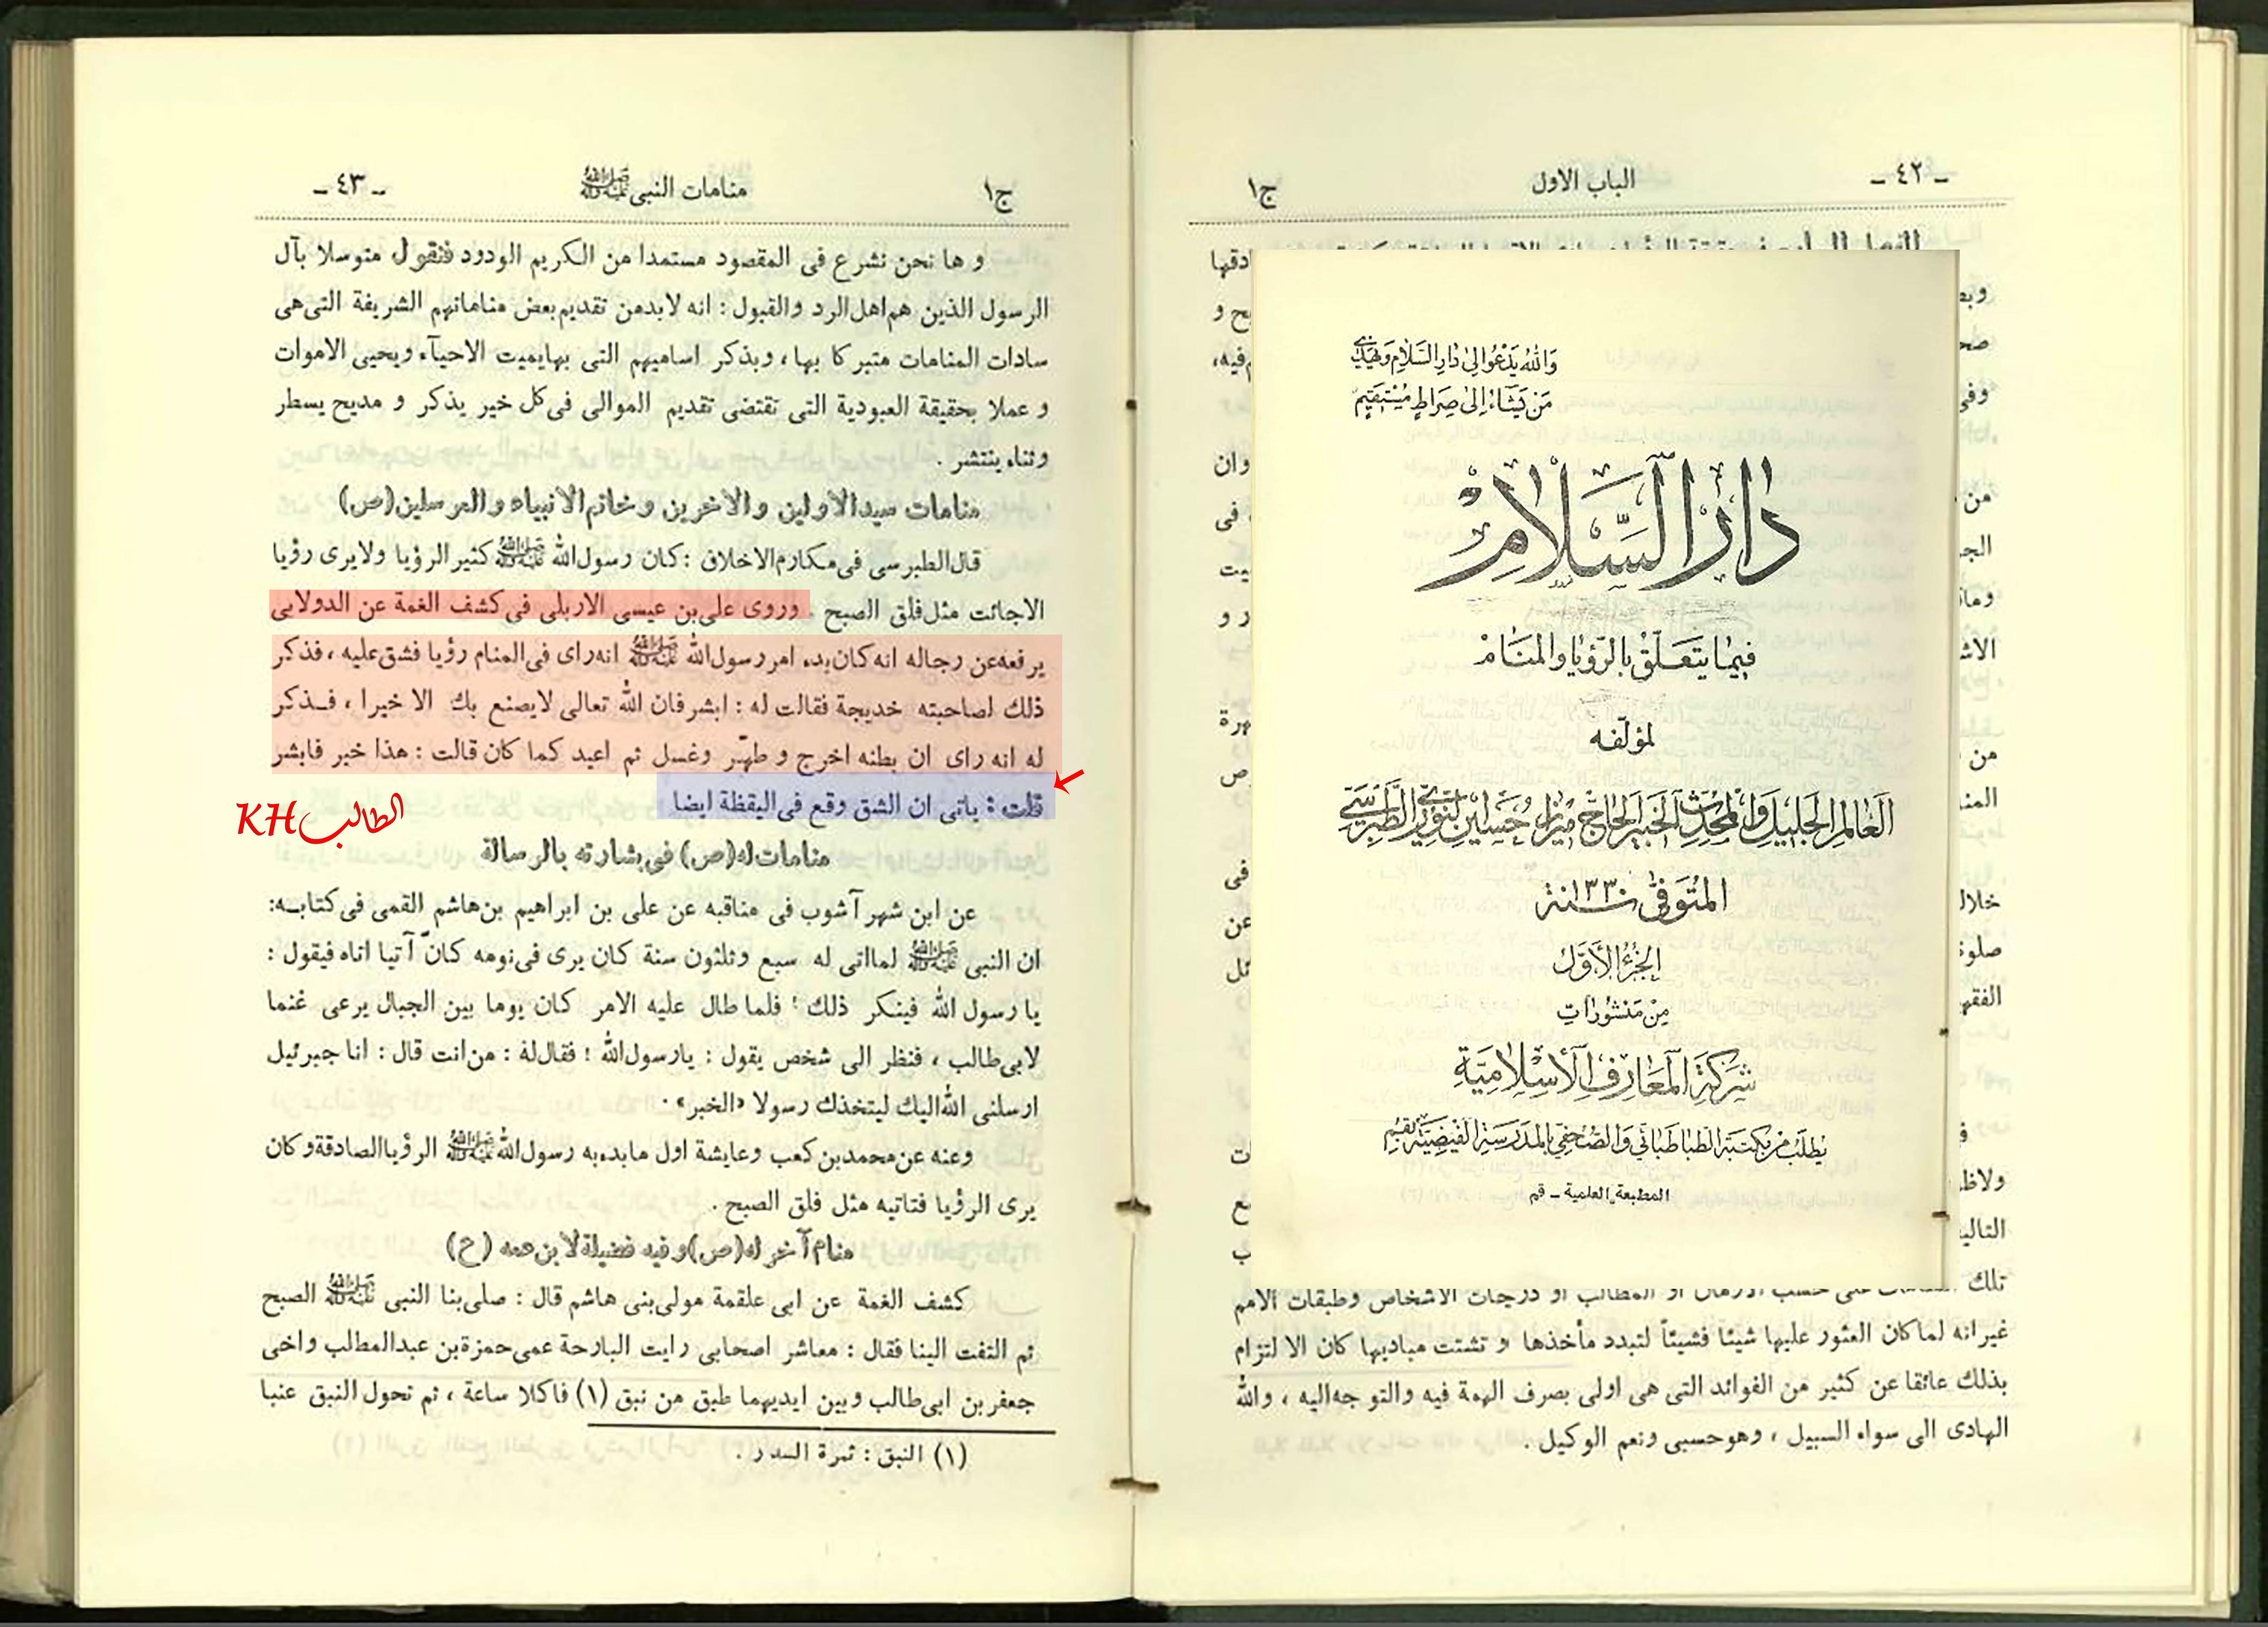 ـ ٤٢ ـ
الباب الاول
ج١
والله يدعوا الى دار السلام ويهدى
من يشاء الى صراط مستقيم
دار السلام
فيما يتعلق بالرؤيا والمنام
لمؤلفه
العالم الجليل والمحدث الخبير الحاج ميرزا حسين النورى الطبرسى
المتوفى سنة ١٣٣٠
الجزء الاول
من منشورات
شركة المعارف الاسلامية
يطلب من مكتبة الطباطبائى والصحفى بالمدرسة الفيضية بقم
المطبعة العلمية ـ قم
تلك على حسب الازمان او المطالب او درجات الاشخاص وطبقات الامم
غيرانه لماكان العثور عليها شيئا فشيئاً لتبدد مأخذها و تشتت مباديها كان الا لتزام
بذلك عائقا عن كثير من الفوائد التى هى اولى بصرف الهمة فيه والتو جه اليه ، والله
الهادى الى سواء السبيل ، وهو حسبى ونعم الوكيل .
ج١
منامات النبى ﷺ
ـ ٤٣ ـ
و ها نحن نشرع فى المقصود مستمدا من الكريم الودود فنقول متوسلا بآل
الرسول الذين هم اهل الرد والقبول : انه لابدمن تقديم بعض مناماتهم الشريفة التى هى
سادات المنامات متبر كا بها ، وبذكر اساميهم التى بها يميت الاحياء ويحيى الاموات
و عملا بحقيقة العبودية التى تقتضى تقديم الموالى فى كل خير يذكر و مديح يسطر
وثناء ينتشر .
منامات سيد الاولين والاخرين وخاتم الانبياء والمرسلين (ص)
قال الطبرسى فى مكارم الاخلاق : كان رسول الله ﷺ كثير الرؤيا ولا يرى رؤيا
الاجائت مثل فلق الصبح . وروى على بن عيسى الاربلى فى كشف الغمة عن الدولابى
يرفعه عن رجاله انه كان بدء امر رسول الله ﷺ انه راى فى المنام رؤيا فشق عليه ، فذكر
ذلك لصاحبته خديجة فقالت له : ابشر فان الله تعالى لا يصنع بك الا خيرا ، فذكر
له انه راى ان بطنه اخرج و طهّر وغسل ثم اعيد كما كان قالت : هذا خير فابشر
قلت : ياتى ان الشق وقع فى اليقظة ايضا
الطالب KH
منامات له (ص) فى بشارته بالرسالة
عن ابن شهر آشوب فى مناقبه عن على بن ابراهيم بن هاشم القمى فى كتابه :
ان النبى ﷺ لمااتى له سبع وثلثون سنة كان يرى فى نومه كانّ آتيا اتاه فيقول :
يا رسول الله فينكر ذلك ؛ فلما طال عليه الامر كان يوما بين الجبال يرعى غنما
لابى طالب ، فنظر الى شخص يقول : يا رسول الله ! فقال له : من انت قال : انا جبرئيل
ارسلنى الله اليك ليتخذك رسولا «الخبر» .
وعنه عن محمد بن كعب وعايشة اول ما بدء به رسول الله ﷺ الرؤيا الصادقة و كان
يرى الرؤيا فتاتيه مثل فلق الصبح .
منام آخر له (ص) و فيه فضيلة لابن عمه (ع)
كشف الغمة عن ابى علقمة مولى بنى هاشم قال : صلى بنا النبى ﷺ الصبح
ثم التفت الينا فقال : معاشر اصحابى رايت البارحة عمى حمزة بن عبد المطلب واخى
جعفر بن ابى طالب وبين ايديهما طبق من نبق (١) فاكلا ساعة ، ثم تحول النبق عنبا
(١) النبق : ثمرة السدر .